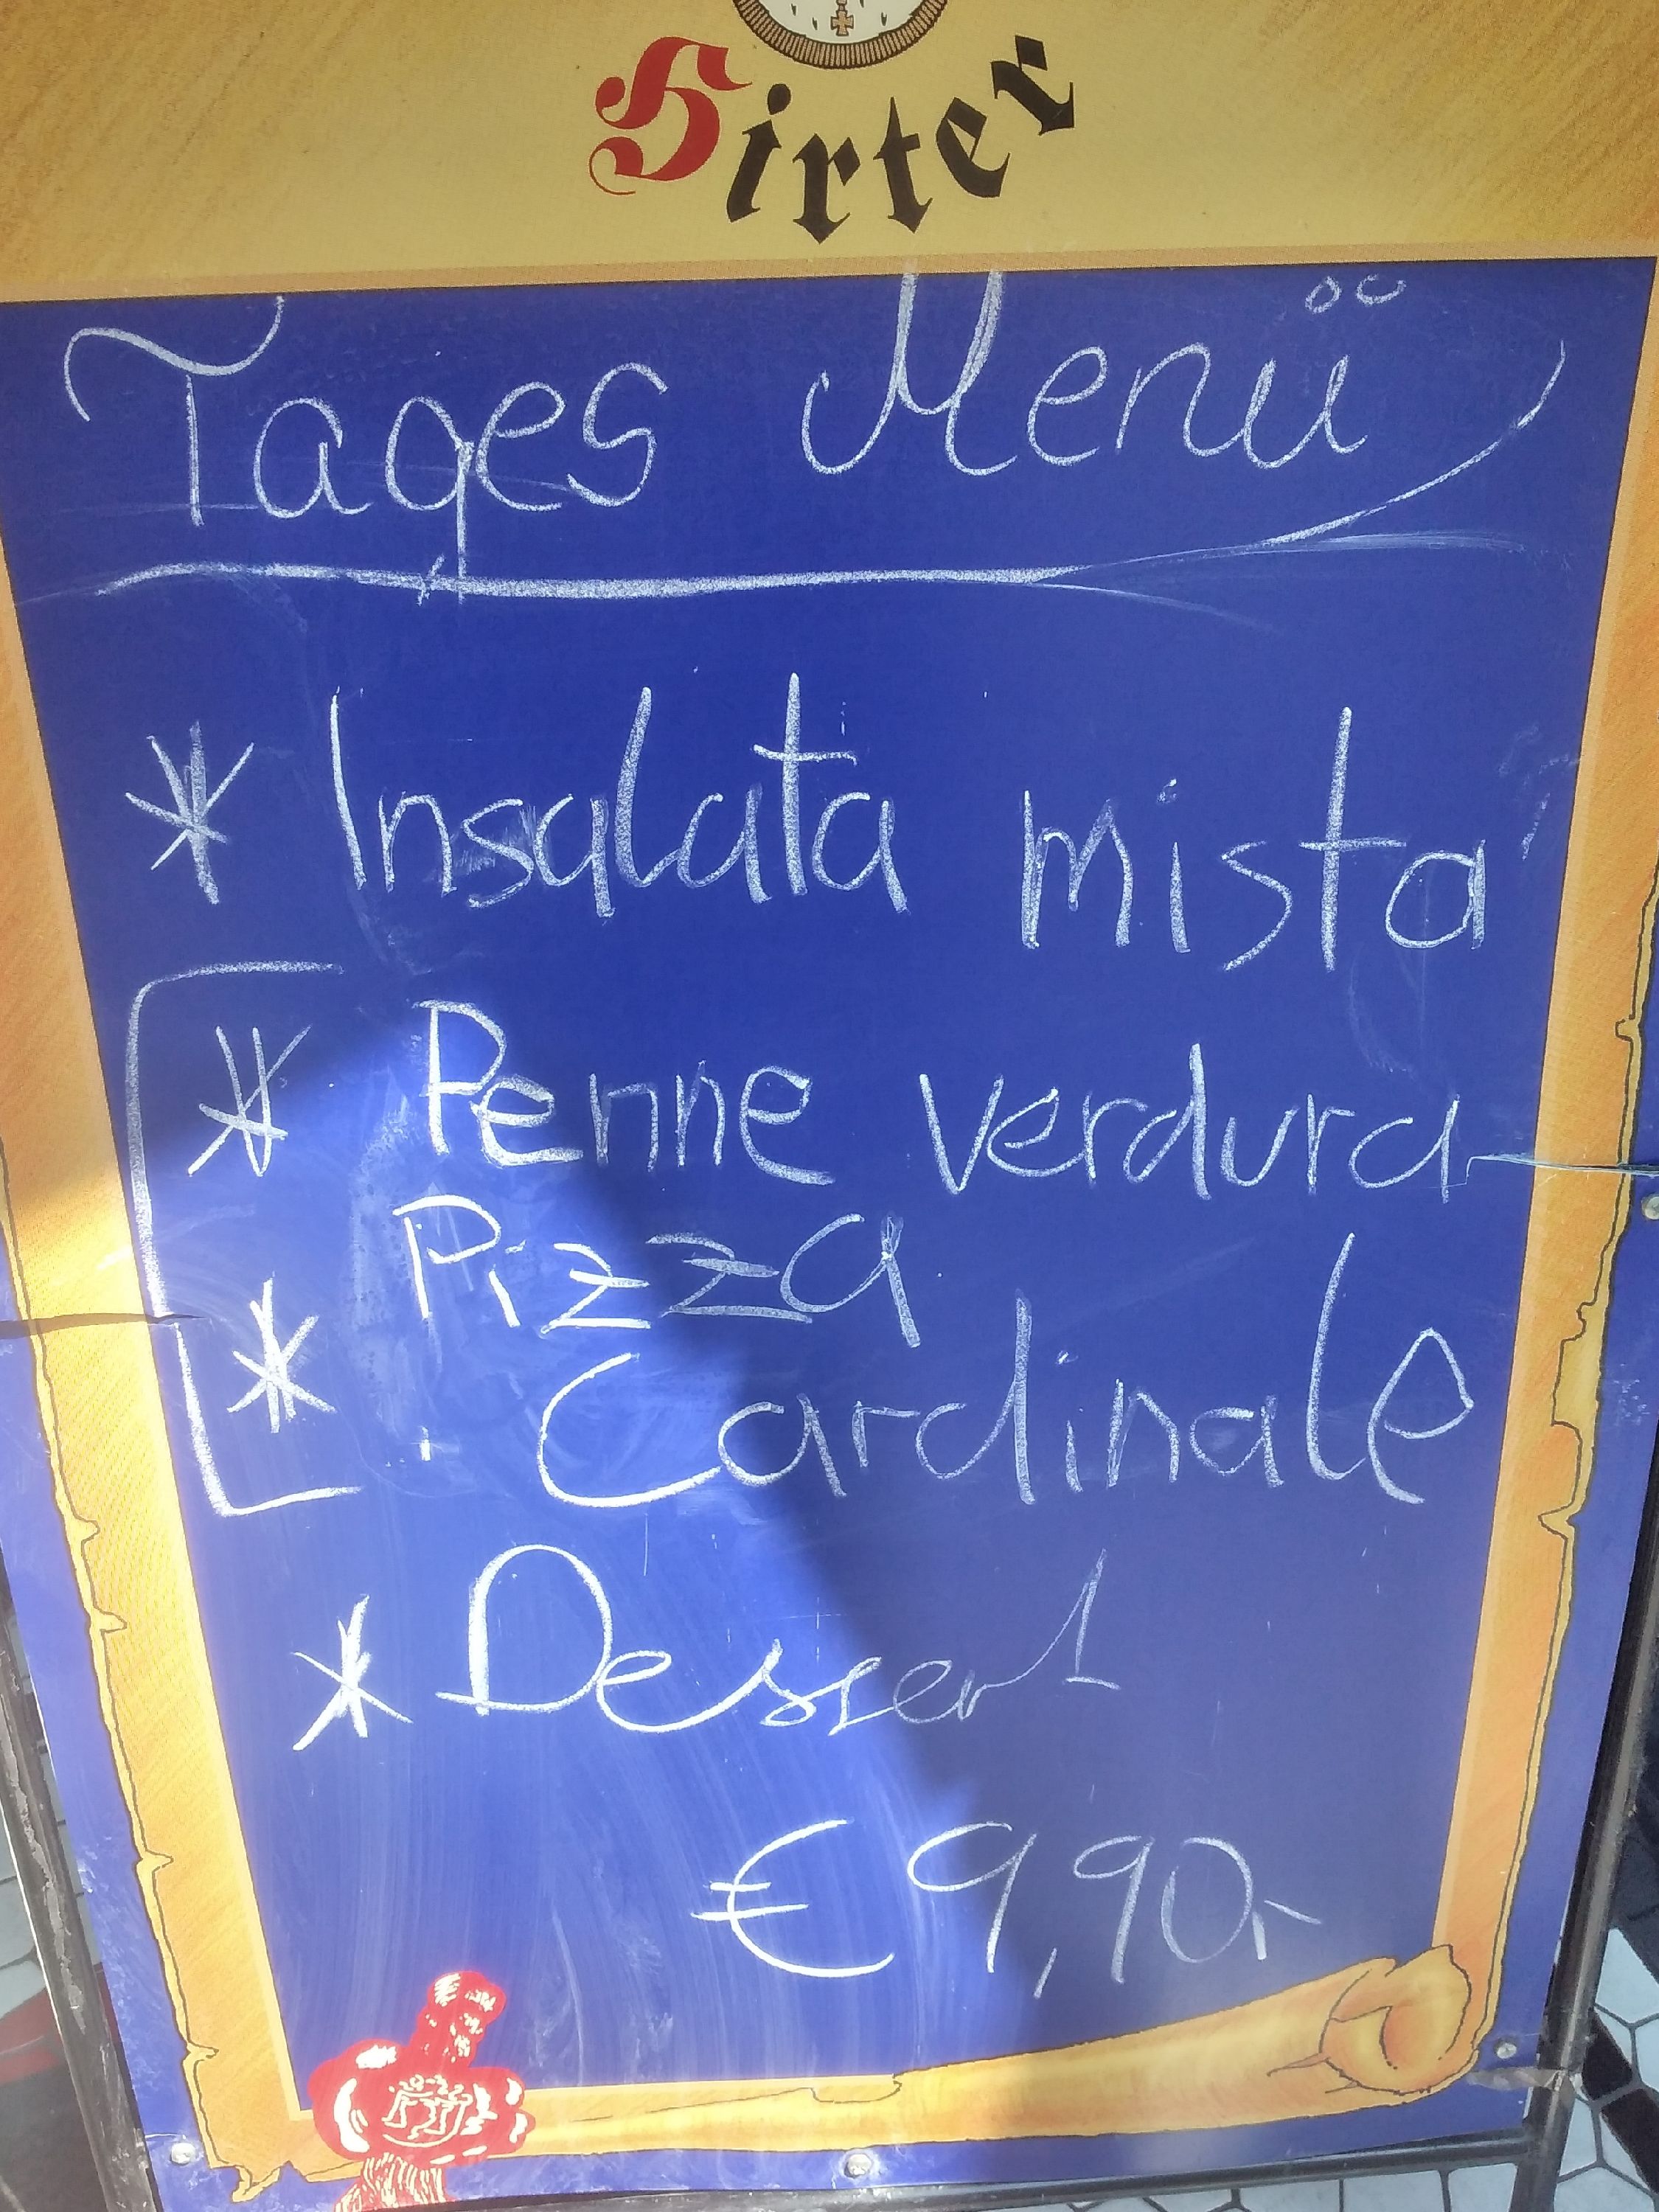 Hirter
Tages Menü
* Insalata mista
* Penne verdura
Pizza
* Cardinale
* Dessert
€ 9,90,-